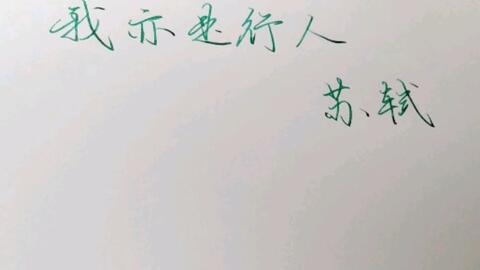 我亦是行人
苏轼